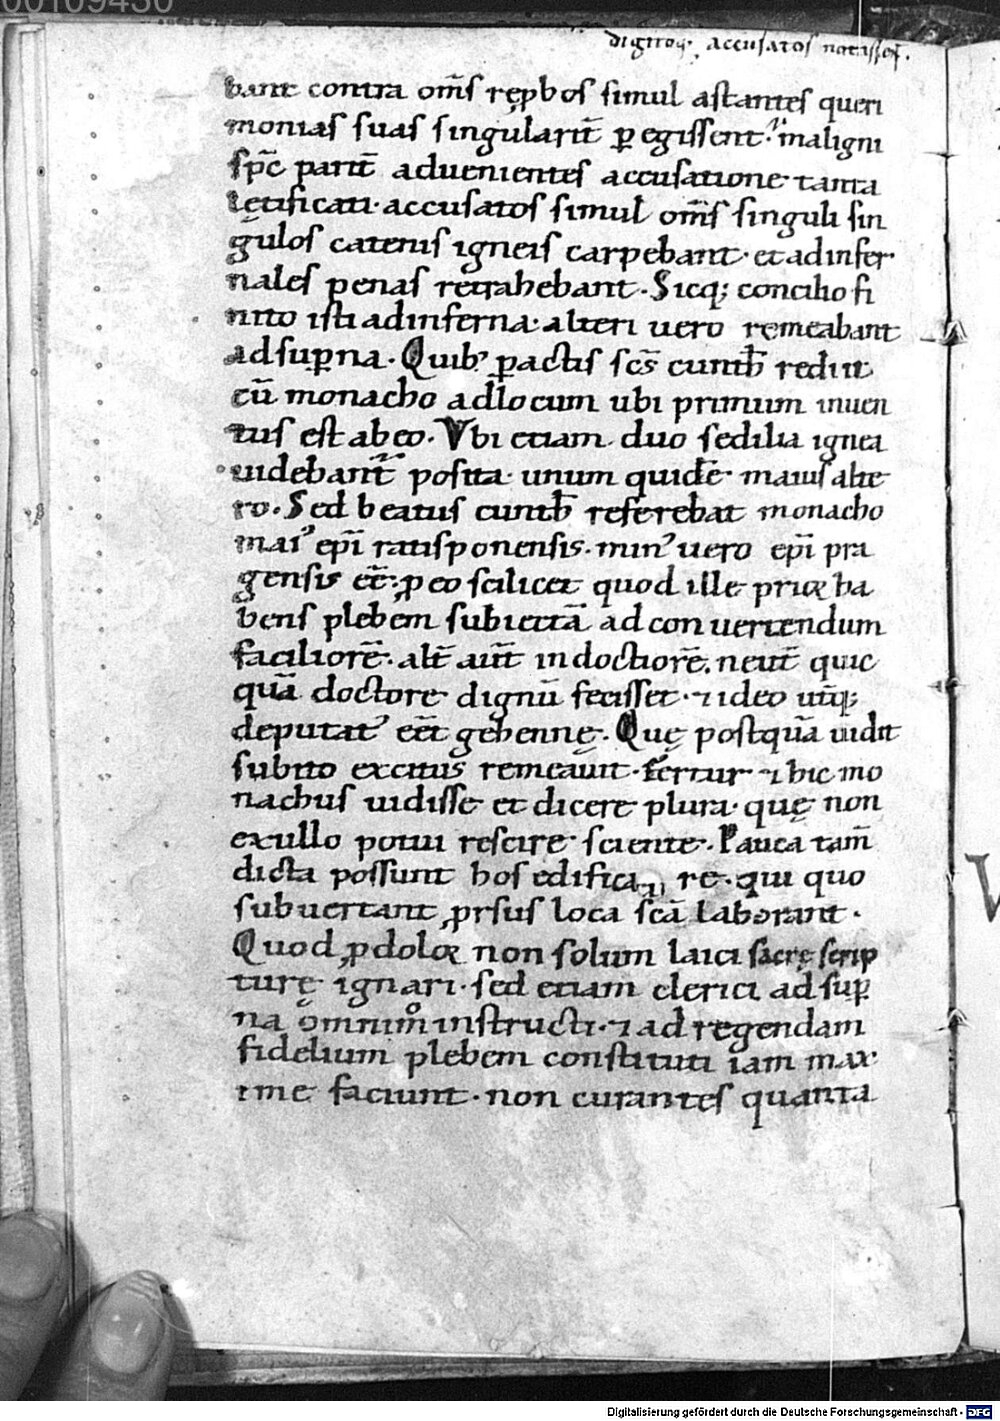 00109430
digitoꝝ accusatos notasset.
bant contra om̄s rep̱bos simul astantes queri
monias suas singularit̄ ꝑ egissent· maligni
sp̄c parit̄ aduenientes accusatione tanta
lętificati· accusatos simul om̄s singuli sin
gulos catenis igneis carpebant· et ad infer
nales penas retrahebant. Sicq; concilio fi
nito isti ad inferna· alteri uero remeabant
ad suꝑna. Quib; ꝑactis sc̄s cuntb̄ rediit
cū monacho ad locum ubi primum inuen
tus est ab eo. Vbi etiam duo sedilia ignea
uidebant᷑ posita· unum quidē maius alte
ro. Sed beatus cuntb̄ referebat monacho
mai᾿ ep̄i ratisponensis. min᾿ uero ep̄i pra
gensis eē. ꝓ eo scilicet quod ille priꝰ ha
bens plebem subiectā ad conuertendum
faciliorē. alt̄ aūt indoctiorē. neut̄ quic
quā doctore dignū fecisset· ⁊ ideo ut̄q;
deputat᾿ eēt gehennę. Quę postquā uidit
subito excitus remeauit· Fertur ⁊ hic mo
nachus uidisse et dicere plura· quę non
ex ullo potui rescire sciente. Pauca tam̄
dicta possunt hos edifica re· qui quo
subuertant ꝓrsus loca scā laborant.
Quod ꝓ doloꝝ non solum laici sacrę scrip
turę ignari· sed etiam clerici ad suꝑ
na omnimo instructi· ⁊ ad regendam
fidelium plebem constituti iam max
ime faciunt· non curantes quanta
Digitalisierung gefördert durch die Deutsche Forschungsgemeinschaft - DFG